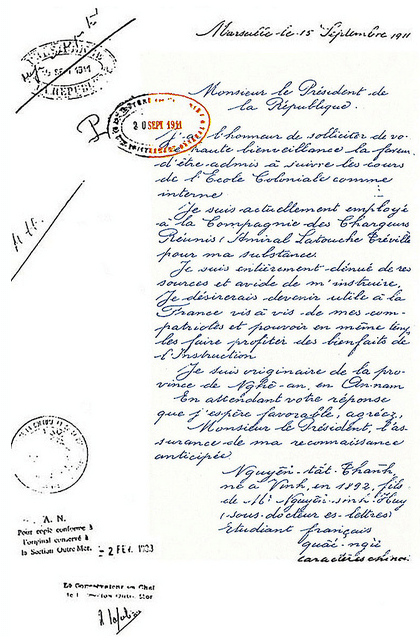 Marseille le 15 Septembre 1911
Monsieur le Président de
la République.
20 SEPT 1911
J'ai l'honneur de solliciter de vo-
haute bienveillance la faveur
d'être admis à suivre les cours
de l'Ecole Coloniale comme
interne
Je suis actuellement employé
à la Compagnie des Chargeurs
Réunis (Amiral Latouche Tréville
pour ma subsistance
Je suis entièrement dénué de res
sources et avide de m'instruire.
Je désirerais devenir utile à la
France vis à vis de mes com-
patriotes et pouvoir en même temps
les faire profiter des bienfaits de
l'Instruction
Je suis originaire de la pro-
vince de Nghê-an, en Annam
En attendant votre réponse
que j'espère favorable, agréez,
Monsieur le Président, l'as-
surance de ma reconnaissance
anticipée
Nguyên-tât-Thanh,
né à Vinh, en 1892, fils
de Mr Nguyên-sinh-Huy
(sous-docteur es-lettres)
Etudiant français
quôc-ngu
caractères chinois
A. N.
Pour copie conforme à
l'original conservé à
la Section Outre-Mer.
- 2 FEV.
Le Conservateur en Chef
de la Section Outre-Mer